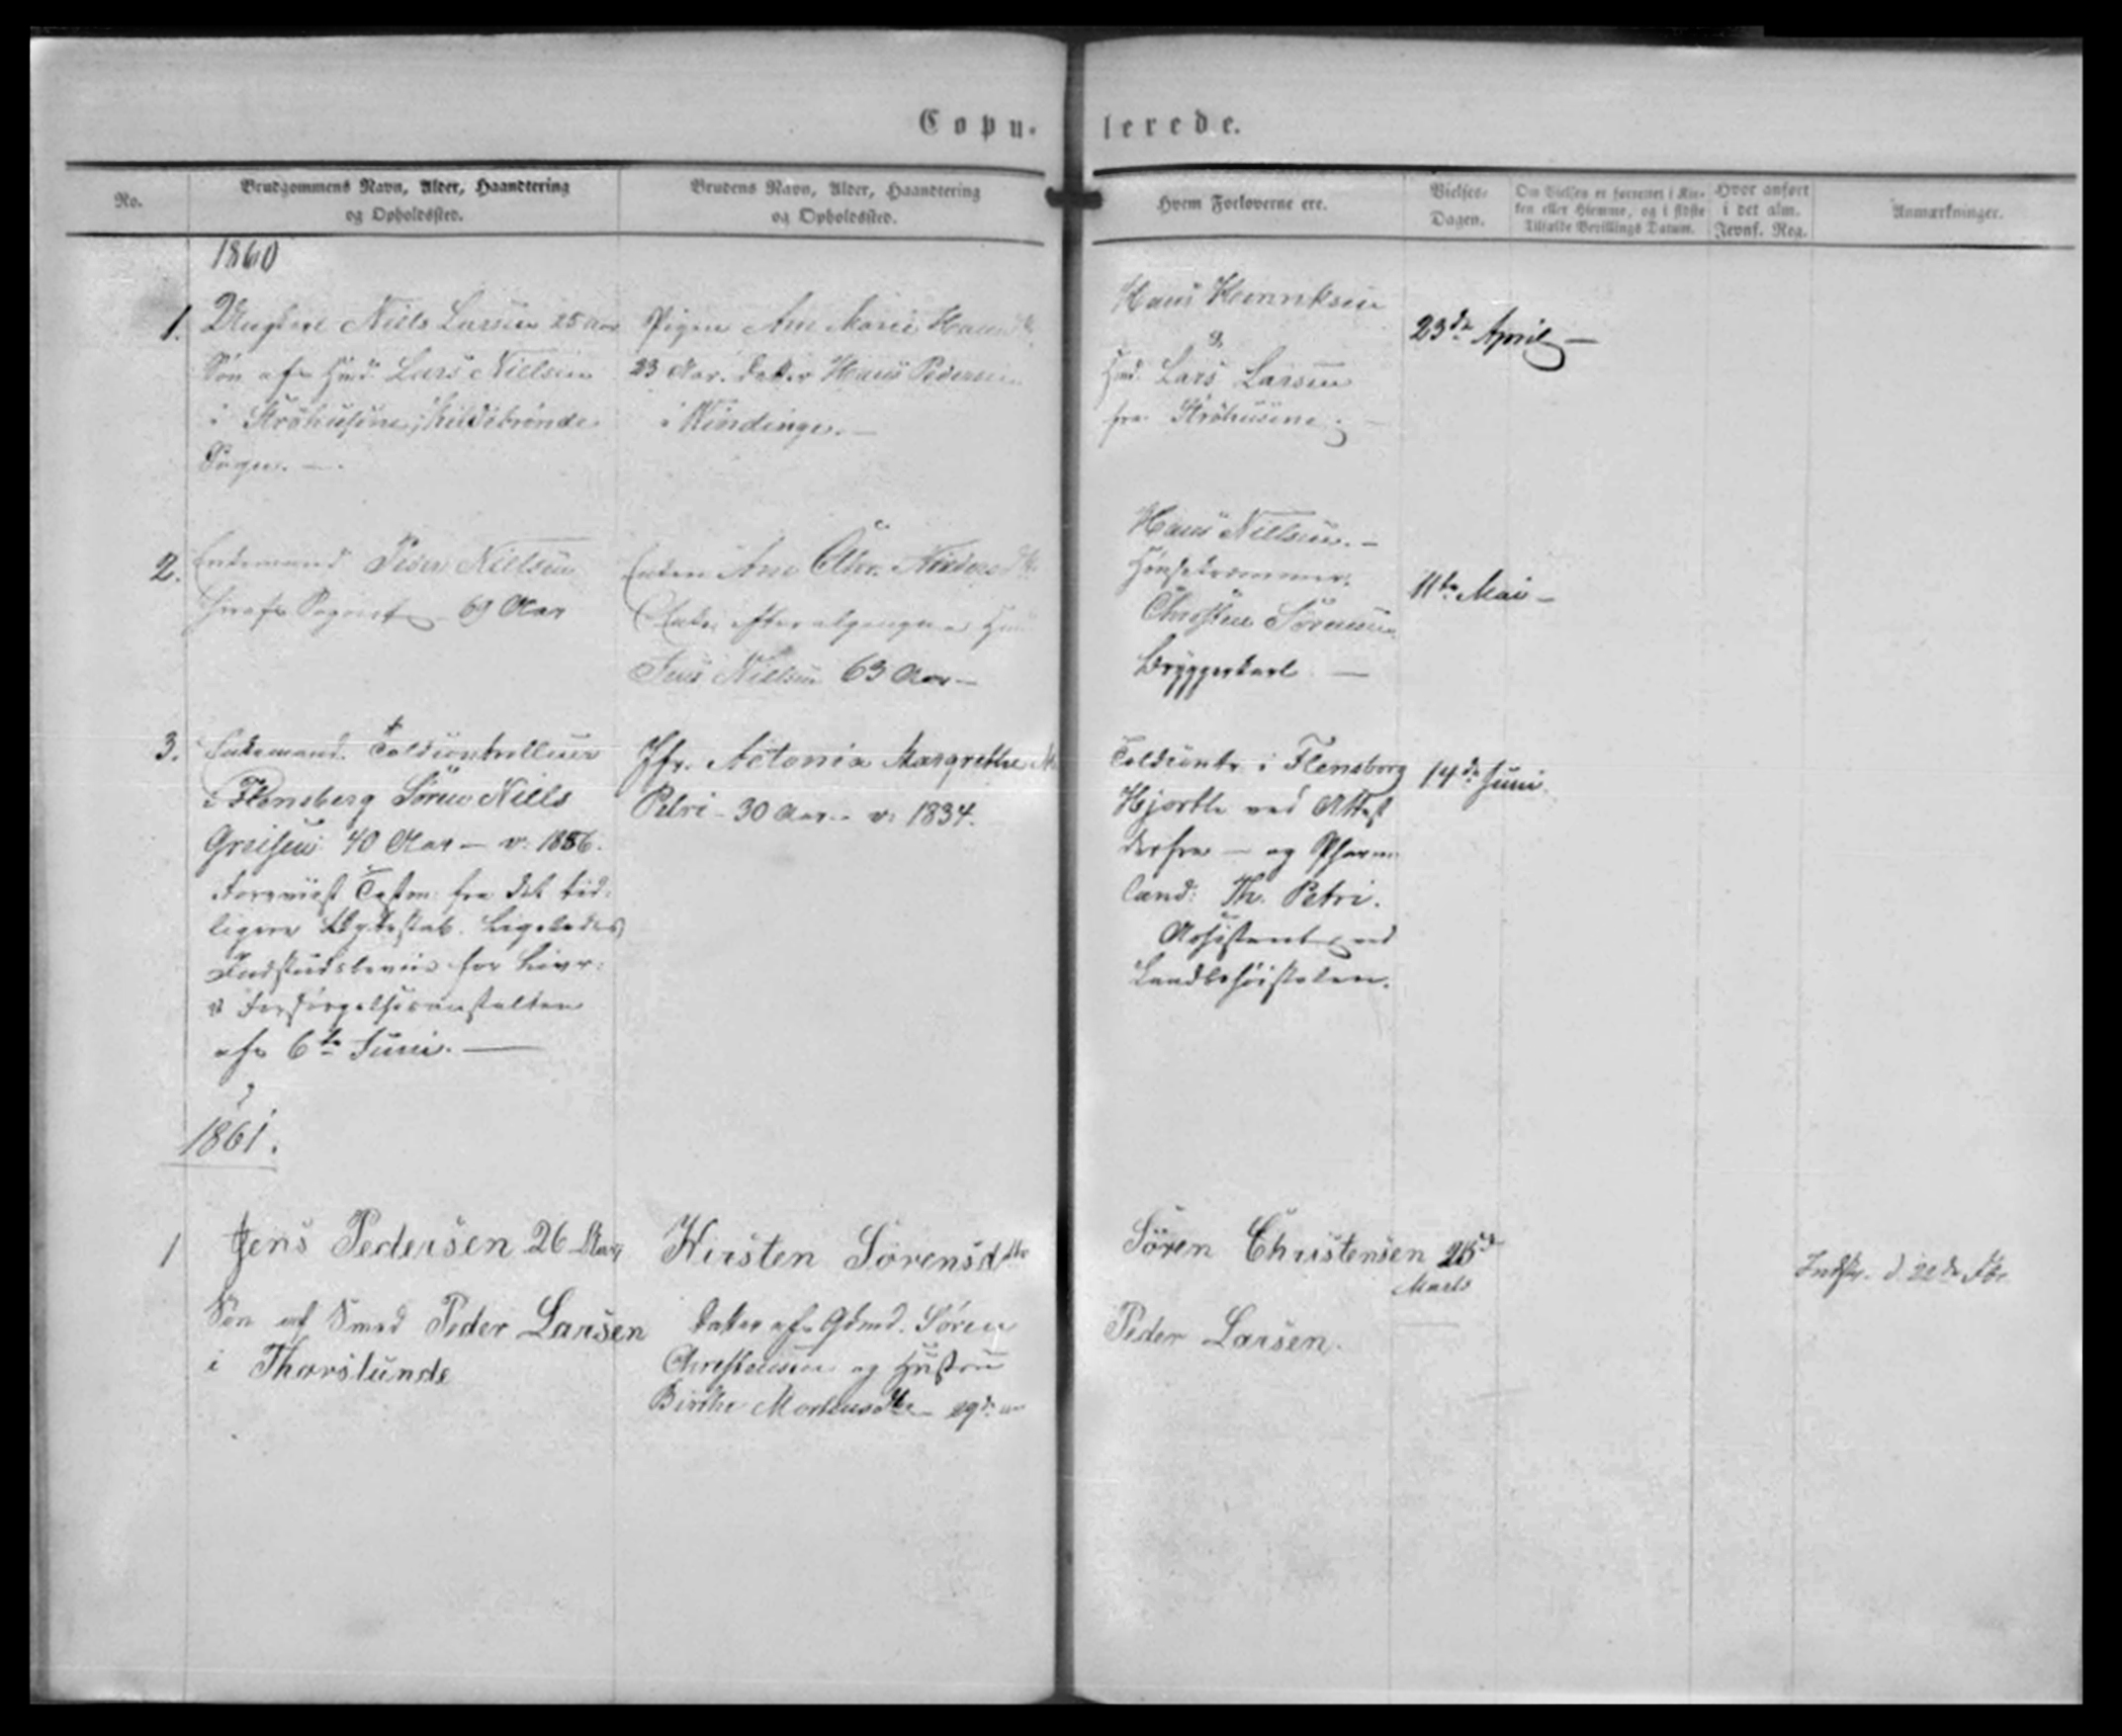 Copu-
lerede.
No.
Brudgommens Navn, Alder, Haandtering
og Opholdssted.
Brudens Navn, Alder, Haandtering
og Opholdssted.
Hvem Forloverne ere.
Vielses-
Dagen.
Om Vielsen er forrettet i Kir-
ken eller Hjemme, og i sidste
Tilfælde Bevillings Datum.
Hvor anført
i det alm.
Jevnf. Reg.
Anmærkninger.
1860
1.
Ungkarl Niels Larsen 25 Aar
Søn af Hmd. Lars Nielsen
i Strøhusene, Kildebrønde
Sogn. —
Pigen Ane Marie Hansdtr.
23 Aar. Datter Hans Pedersen
i Vindinge. —
Hans Henriksen
&
Hmd. Lars Larsen
fra Strøhusene. —
23de April —
2.
Enkemand Peder Nielsen
69 Aar
Enken Ane Chr.
Enke efter
Jens Nielsen 63 Aar —
Hans Nielsen. —
Christen Sørensen
Bryggerkarl —
11te Mai —
3.
Enkemand Toldcontrolleur
i Flensborg Søren Niels
Greisen 40 Aar — v. 1856.
Forevist Testm. fra det tid-
ligere Ligeledes
Indskudsbeviis for Livr-
& Forsørgelsesanstalten
af 6te Juni. —
Jfr. Actonia Margrethe
Petri - 30 Aar - v. 1834.
Toldcontr. i Flensborg
Hjorth ved Attest
derfra — og Pharm
cand: Th. Petri.
Assistent ved
Landbohøiskolen.
14de Juni
1861.
1
Jens Pedersen 26 Aar
Søn af Smed Peder Larsen
i Thorslunde
Kirsten Sørensdtr
Datter af Gdmd. Søren
Christensen og Hustru
Birthe Mortensdtr
Søren Christensen
Peder Larsen.
Marts
d. 22de Fbr